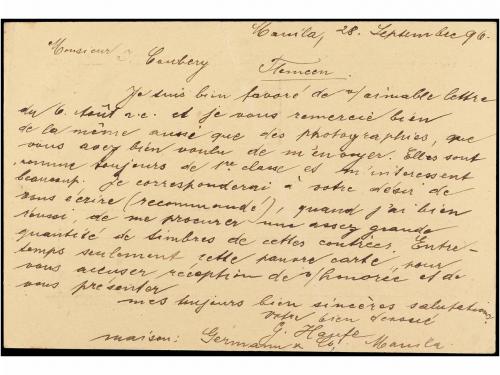 Manila, 28. Septembre 96.
Monsieur J. Coubery Tlemcen.
Je suis bien favoré de v/ aimable lettre
du 6. Août a.c. et je vous remercie bien
de la même aussi que des photographies, que
vous avez bien voulu de m'envoyer. Elles sont
comme toujours de 1re classe et m'interessent
beaucoup. Je corresponderai à votre désir de
vous écrire (recommandé), quand j'ai bien
réussi, de me procurer une assez grande
quantité de timbres de cettes contrées. Entre-
temps seulement cette pauvre carte, pour
vous accuser réception de v/ honorée et de
vous présenter
mes toujours bien sincères salutations
votre bien devoué
G. Haufe
maison: Germann & Co, Manila.